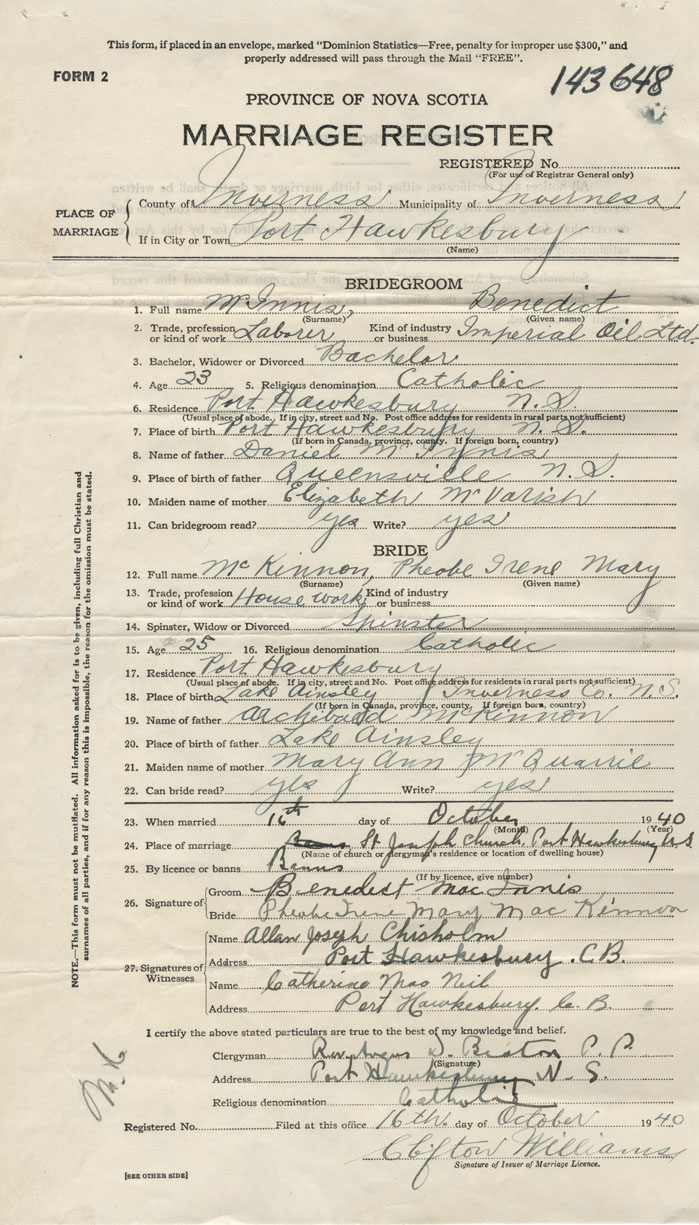 This form, if placed in an envelope, marked "Dominion Statistics—Free, penalty for improper use $300," and
properly addressed will pass through the Mail "FREE".
FORM 2
143648
PROVINCE OF NOVA SCOTIA
MARRIAGE REGISTER
REGISTERED No.
(For use of Registrar General only)
PLACE OF MARRIAGE
County of Inverness Municipality of Inverness
If in City or Town Port Hawkesbury
(Name)
BRIDEGROOM
1. Full name McInnis, Benedict
(Surname) (Given name)
2. Trade, profession or kind of work Laborer Kind of industry or business Imperial Oil Ltd.
3. Bachelor, Widower or Divorced Bachelor
4. Age 23 5. Religious denomination Catholic
6. Residence Port Hawkesbury N.S.
(Usual place of abode. If in city, street and No. Post office address for residents in rural parts not sufficient)
7. Place of birth Port Hawkesbury N.S.
(If born in Canada, province, county. If foreign born, country)
8. Name of father Daniel McInnis
9. Place of birth of father Queensville N.S.
10. Maiden name of mother Elizabeth McVarish
11. Can bridegroom read? yes Write? yes
BRIDE
12. Full name McKinnon, Pheobe Irene Mary
(Surname) (Given name)
13. Trade, profession or kind of work House work Kind of industry or business
14. Spinster, Widow or Divorced Spinster
15. Age 25 16. Religious denomination Catholic
17. Residence Port Hawkesbury
(Usual place of abode. If in city, street and No. Post office address for residents in rural parts not sufficient)
18. Place of birth Lake Ainsley Inverness Co. N.S.
(If born in Canada, province, county. If foreign born, country)
19. Name of father Archibald McKinnon
20. Place of birth of father Lake Ainsley
21. Maiden name of mother Mary Ann McQuarrie
22. Can bride read? yes Write? yes
23. When married 16th day of October 1940
(Month) (Year)
24. Place of marriage St Joseph Church, Port Hawkesbury N.S
(Name of church or clergyman's residence or location of dwelling house)
25. By licence or banns Banns
(If by licence, give number)
26. Signature of
Groom Benedict MacInnis
Bride Pheobe Irene Mary MacKinnon
27. Signatures of Witnesses
Name Allan Joseph Chisholm
Address Port Hawkesbury. C.B.
Name Catherine MacNeil
Address Port Hawkesbury. C.B.
I certify the above stated particulars are true to the best of my knowledge and belief.
Clergyman Rev Angus D. Beaton P.P.
(Signature)
Address Port Hawkesbury N. S.
Religious denomination Catholic
Registered No. Filed at this office 16th. day of October 1940
Clifton Williams
Signature of Issuer of Marriage Licence.
[SEE OTHER SIDE]
NOTE.—This form must not be mutilated. All information asked for is to be given, including full Christian and
surnames of all parties, and if for any reason this is impossible, the reason for the omission must be stated.